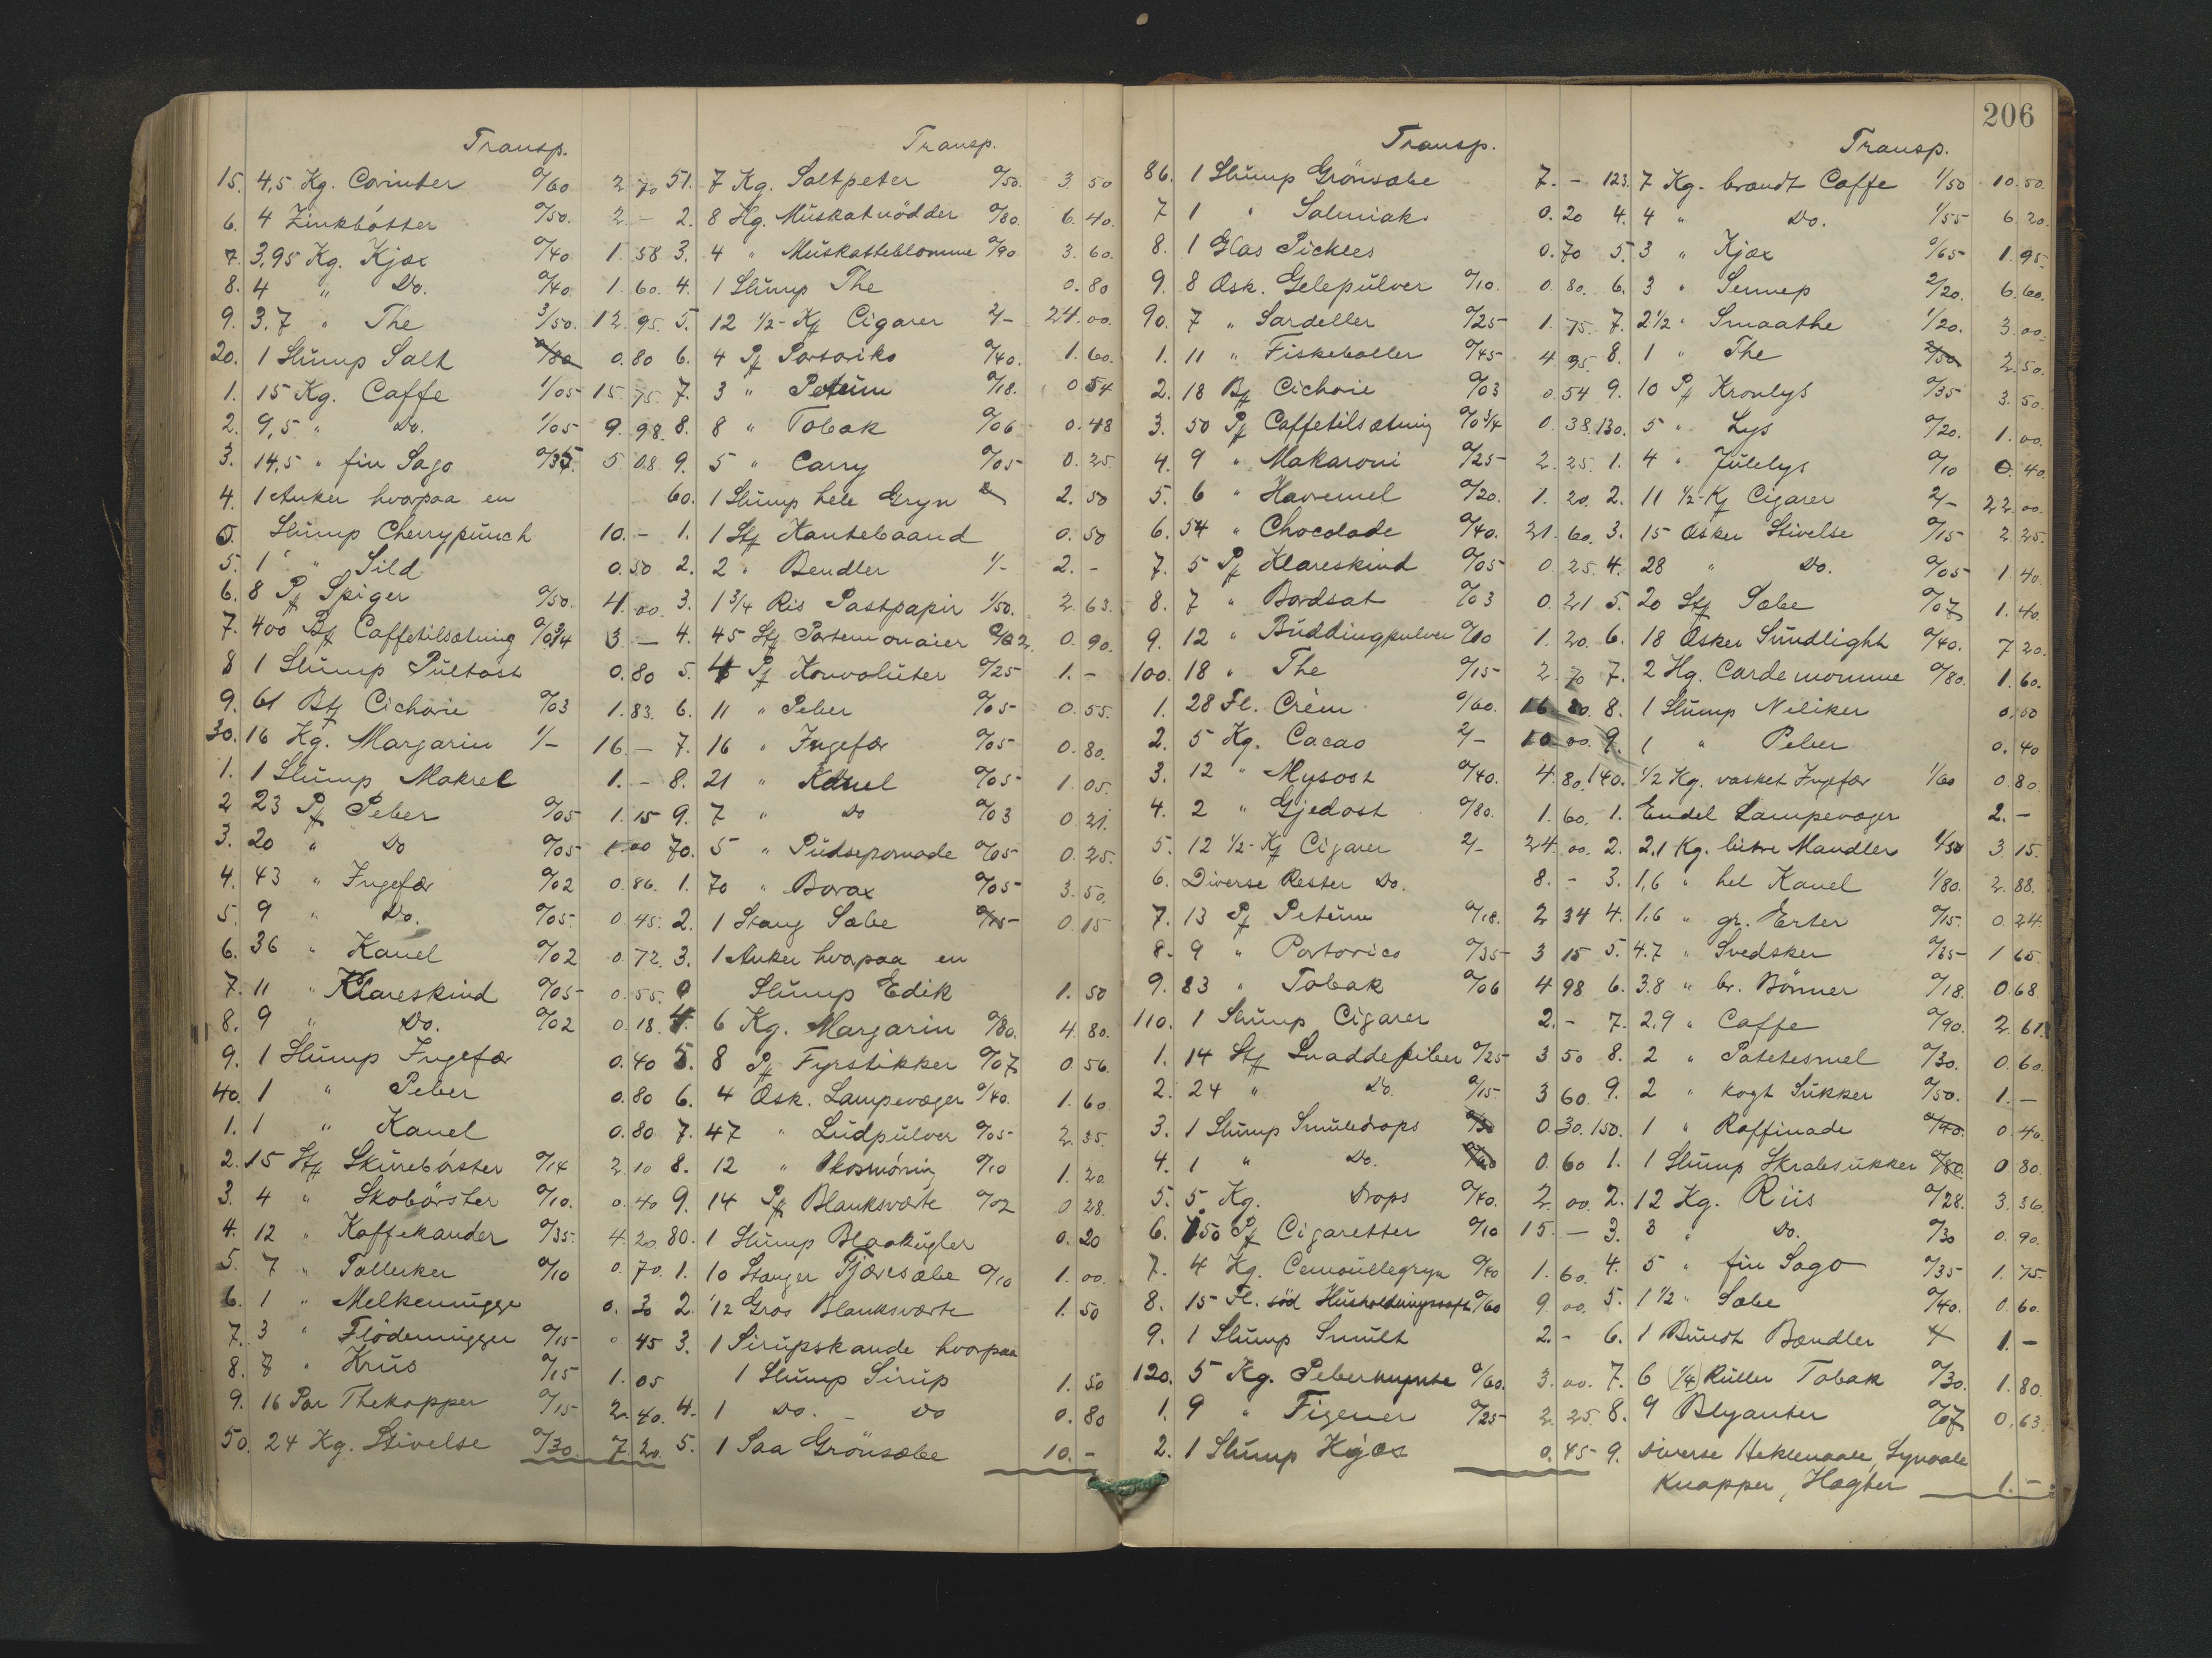 206
Transp.
15. 4,5 Kg. Corinter 0/60 2 70
6. 4 Zinkbötter 0/50. 2 –
7. 3,95 Kg. Kjæx 0/40 1. 58
8. 4 " Do. 0/40. 1. 60.
9. 3.7 " The 3/50. 12. 95.
20. 1 Slump Salt 0.80
1. 15 Kg. Caffe 1/05 15. 75.
2. 9,5 " Do. 1/05 9. 98.
3. 14,5 " fin Sago 0/35. 5. 08.
4. 1 Anker hvorpaa en
Slump Cherrypunch 10.-
5. 1 " Sild 0.50
6. 8 Pf Spiger 0/50. 4.00
7. 400 Bf Caffetilsætning 0/03/4 3 –
8 1 Slump Pultost 0.80
9. 61 Btf Cichorie 0/03 1.83.
30. 16 Kg. Margarin 1/- 16.–
1. 1 Slump Makrel 1.–
2 23 Pf Peber 0/05 1.15
3. 20 " Do 0/05 1.00
4. 43 " Ingefær 0/02 0.86.
5. 9 " Do. 0/05. 0 45.
6. 36 " Kanel 0/02 0.72.
7. 11 " Klareskind 0/05- 0.55.
8. 9 " Do. 0/02 0.18.
9. 1 Slump Ingefær 0.40
40. 1 " Peber 0.80
1. 1 " Kanel 0.80
2. 15 Stf Skurebörster 0/14 2.10
3. 4 " Skobörster 0/10. 0.40
4. 12 " Kaffekander 0/35. 4.20.
5. 7 " Tallerker 0/10 0.70.
6. 1 " Melkemugge 0. 30
7. 3 " Flödemugger 0/15 0 45
8. 7 " Krus 0/15 1.05
9. 16 Par Thekopper 0/15 2.40.
50. 24 Kg. Stivelse 0/30. 7.20.
Transp.
51. 7 Kg. Saltpeter 0/50. 3. 50
2. 8 Hg. Muskatnödder 0/80 6.40.
3. 4 " Muskatteblomme 0/90 3.60.
4. 1 Slump The 0.80
5. 12 1/2-Kf Cigarer 2/- 24.00.
6. 4 Pf Portoriko 0/40. 1.60.
7. 3 " Petum 0/18. 0 54
8. 8 " Tobak 0/06 0.48
9. 5 " Carry 0/05 0.25.
60. 1 Slump hele Gryn 2.50
1. 1 Stf Kantebaand 0.50
2. 2 " Bendler 1/- 2.-
3. 1 3/4 Ris Postpapir 1/50. 2.63.
4. 45 Stf Portemonaier 0/02. 0.90.
5. 4 Pf Konvoluter 0/25 1.-
6. 11 " Peber 0/05- 0.55.
7. 16 " Ingefær 0/05- 0.80.
8. 21 " Kanel 0/05- 1.05.
9. 7 " Do 0/03 0.21.
70. 5 " Pudsepomade 0/05- 0.25.
1. 70 " Borax 0/05- 3.50.
2. 1 Stang Sæbe 0/15- 0.15
3. 1 Anker hvorpaa en
Slump Edik 1.50
4. 6 Kg. Margarin 0/80. 4.80.
5. 8 Pf Fyrstikker 0/07. 0.56.
6. 4 Æsk. Lampevæger 0/40. 1.60
7. 47 " Ludpulver 0/05- 2.35.
8. 12 " 0/10 1.20.
9. 14 Pf Blanksværte 0/02 0 28.
80. 1 Slump Blaakugler 0.20
1. 10 Stanger Tjæresæbe 0/10 1.00.
2. 1/2 Gros Blanksværte 1.50
3. 1 Sirupskande hvorpaa
1 Slump Sirup 1.50
4. 1 Do. – Do 0.80
5. 1 Saa Grönsæbe 10.-
Transp.
86. 1 Slump Grönsæbe 7.-
7 1 " Salmiak 0.20
8. 1 Glas Pickles 0.70
9. 8 Æsk. Gelepulver 0/10. 0.80.
90. 7 " Sardeller 0/25 1.75.
1. 11 " Fiskeboller 0/45 4.95
2. 18 Bf Cichorie 0/03 0.54
3. 50 Pf Caffetilsætning 0/03/4 0.38.
4. 9 " Makaroni 0/25- 2.25.
5. 6 " Havremel 0/20. 1.20.
6. 54 " Chocolade 0/40. 21.60.
7. 5 Pf Klareskind 0/05 0.25.
8. 7 " Bordsat 0/03 0.21
9. 12 " Buddingpulver 0/10 1.20.
100. 18 " The 0/15- 2.70
1. 28 Fl. Crèm 0/60. 16 80.
2. 5 Kg. Cacao 2/- 10.00.
3. 12 " Mysost 0/40. 4.80.
4. 2 " Gjedost 0/80. 1.60.
5. 12 1/2-Kf Cigarer 2/- 24.00.
6. Diverse Rester Do. 8.-
7. 13 Pf Petum 0/18. 2 34
8. 9 " Portorico 0/35- 3 15
9. 83 " Tobak 0/06 4 98
110. 1 Slump Cigarer 2.-
1. 14 Stf Snaddepiber 0/25 3 50
2. 24 " Do. 0/15- 3 60
3. 1 Slump Smuledrops 0.30.
4. 1 " Do. 0.60
5. 5 Kg. Drops 0/40. 2.00.
6. 150 Pf Cigaretter 0/10 15.–
7. 4 Kg. Cemoullegryn 0/40 1.60.
8. 15 Fl. söd Husholdningssaft 0/60 9.00.
9. 1 Slump Smult 2.-
120. 5 Kg. Peber 0/60. 3.00.
1. 9 " Figener 0/25 2.25
2. 1 Slump Kjæx 0.45
Transp.
123. 7 Kg. brændt Caffe 1/50 10.50.
4. 4 " Do. 1/55 6.20.
5. 3 " Kjæx 0/65- 1.95.
6. 3 " Sennep 2/20. 6.60.
7. 2 1/2 " Smaathe 1/20. 3.00.
8. 1 " The 2/50 2.50.
9. 10 Pf Kronlys 0/35 3.50.
130. 5 " Lys 0/20. 1.00.
1. 4 " Julelys 0/10 0.40.
2. 11 1/2-Kf Cigarer 2/- 22.00.
3. 15 Æsker Stivelse 0/15 2.25.
4. 28 " Do. 0/05 1.40.
5. 20 Stf Sæbe 0/07 1.40.
6. 18 Æsker Sundlight 0/40. 7 20.
7. 2 Hg. Cardemomme 0/80. 1.60.
8. 1 Slump Neliker
9. 1 " Peber 0.40
140. 1/2 Kg. vasket Ingefær 1/60 0.80.
1. Endel Lampevæger 2.-
2. 2,1 Kg. bitre Mandler 1/50 3.15.
3. 1,6 " hel Kanel 1/80. 2.88.
4. 1,6 " gr. Erter 0/15. 0.24.
5. 4.7 " Svedsker 0/35- 1 65.
6. 3.8 " br. Bönner 0/18. 0.68
7. 2,9 " Caffe 0/90. 2.61.
8. 2 " Potetesmel 0/30. 0.60.
9. 2 " kogt Sukker 0/50. 1.–
150. 1 " Raffinade 0/40. 0.40.
1. 1 Slump Skrabsukker 0/80 0.80.
2. 12 Kg. Riis 0/28. 3.36.
3. 3 " Do. 0/30 0.90.
4. 5 " fin Sago 0/35 1.75.
5. 1 1/2 " Sæbe 0/40. 0.60.
6. 1 Bundt Bændler 1.-
7. 6 (1/4) Ruller Tobak 0/30. 1.80.
8. 9 Blyanter 0/07 0.63.
9. Diverse Heklenaale, Synaale
Knapper, Hægter 1.-